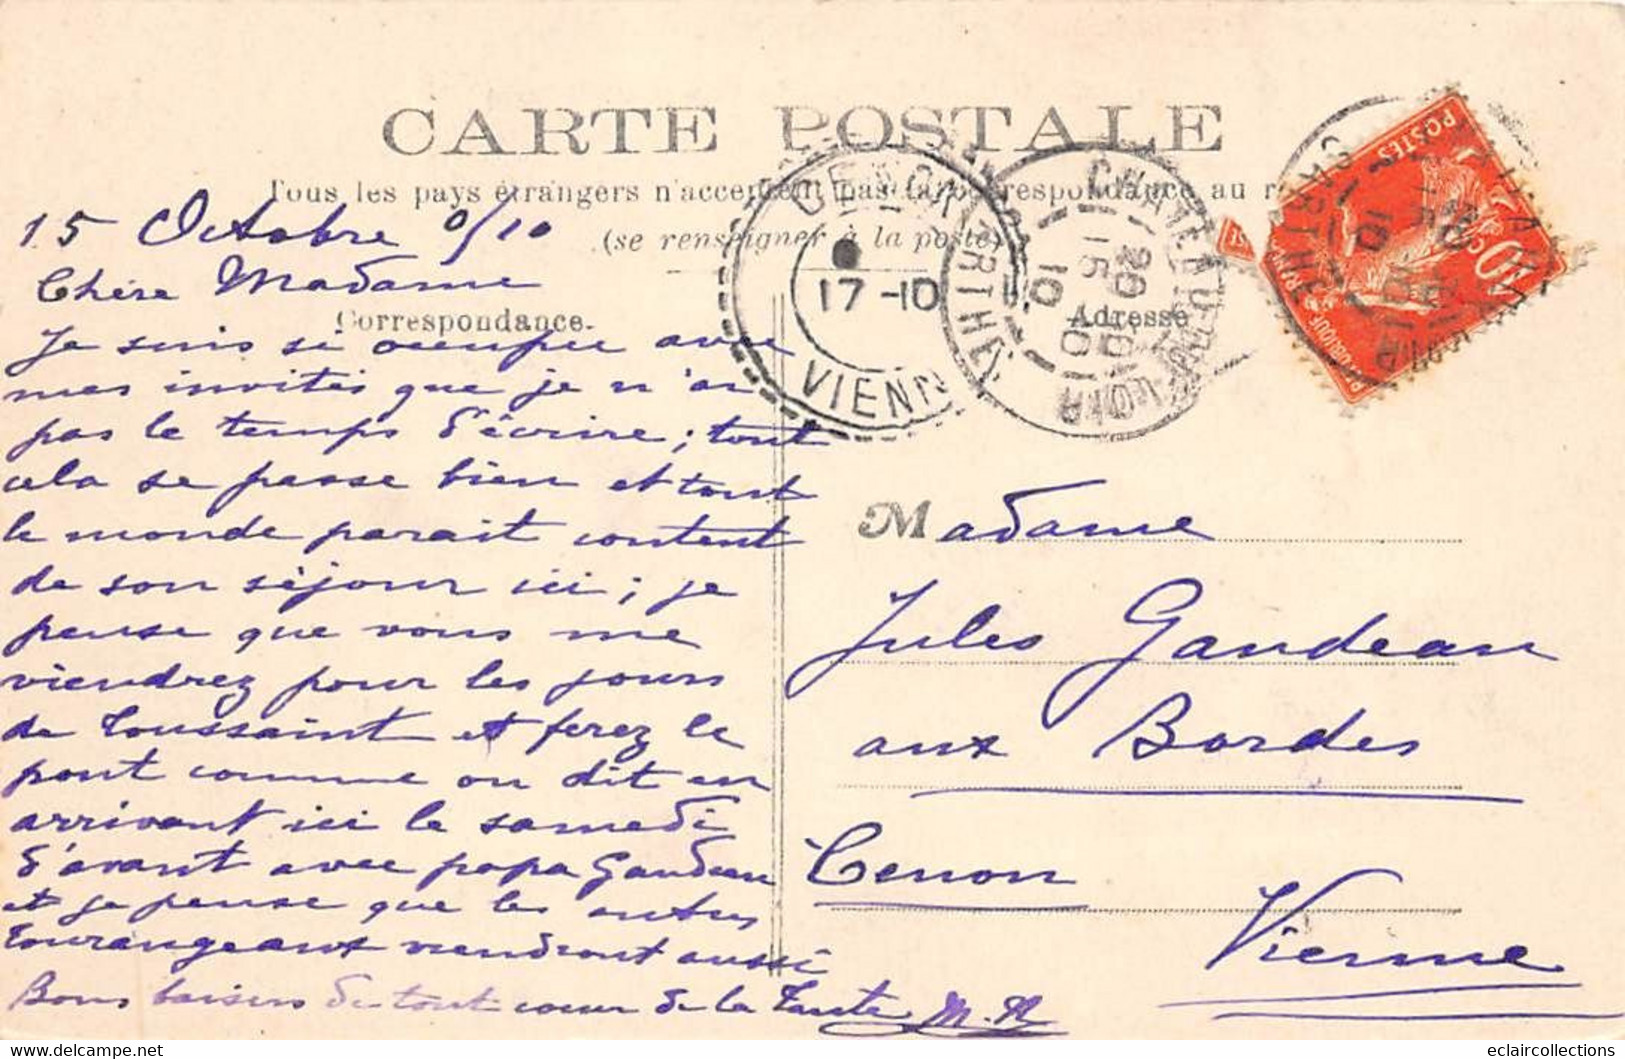 CARTE POSTALE
Tous les pays étrangers n'acceptent pas la correspondance au
(se renseigner à la poste)
15 Octobre 0/10
Chère Madame
Correspondance.
Je suis si occupée avec
mes invités que je n'ai
pas le temps d'écrire; tout
cela se passe bien et tout
le monde parait content
de son séjour ici; je
pense que vous me
viendrez pour les jours
de Toussaint et ferez le
pont comme on dit en
arrivant ici le samedi
d'avant avec papa Gaudeau
et je pense que les autres
tourangeaux viendront aussi
Bons baisers de tout cœur de la Tante M. R
17 -10
VIENN
CHATEAU DU LOIR
SARTHE
20 30
15 10
10
Adresse
POSTES
10c
Madame
Jules Gaudeau
aux Bordes
Cenon
Vienne
eclaircollections